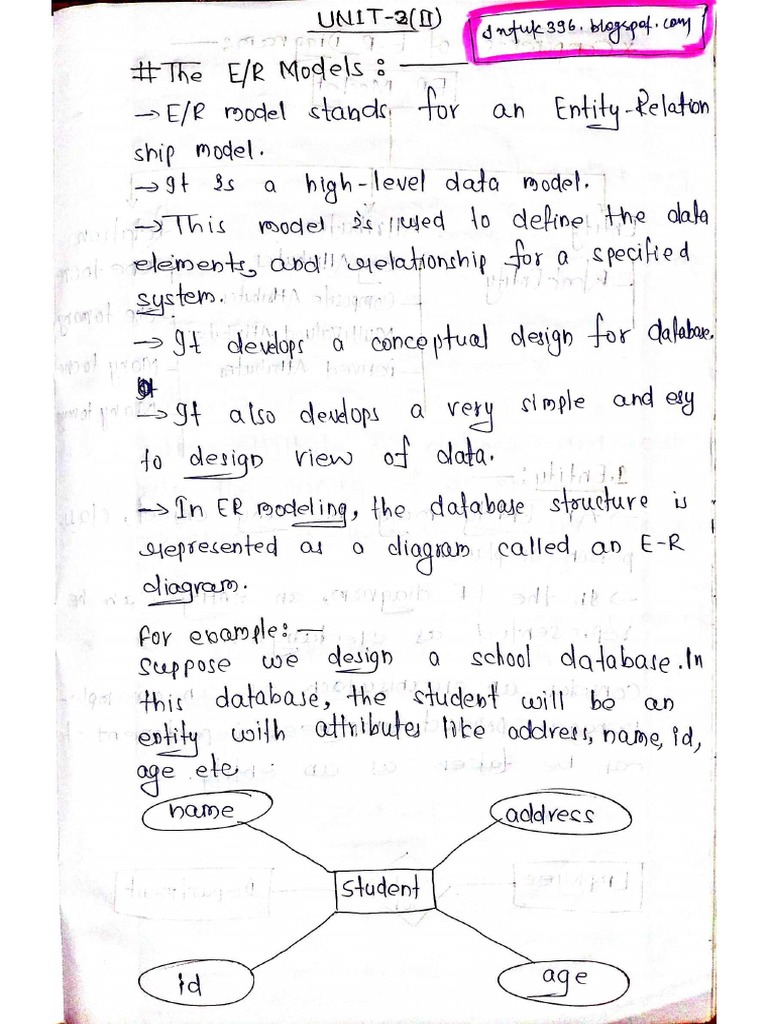 UNIT-2(II)
jntuk396.blogspot.com
# The E/R Models:
→ E/R model stands for an Entity-Relation
ship model.
→ It is a high-level data model.
→ This model is used to define the data
elements, and relationship for a specified
system.
→ It develops a conceptual design for database.
→ It also develops a very simple and esy
to design view of data.
→ In ER modeling, the database structure is
represented as a diagram called an E-R
diagram.
For example:—
Suppose we design a school database. In
this database, the student will be an
entity with attributes like address, name, id,
age etc
name
address
Student
id
age